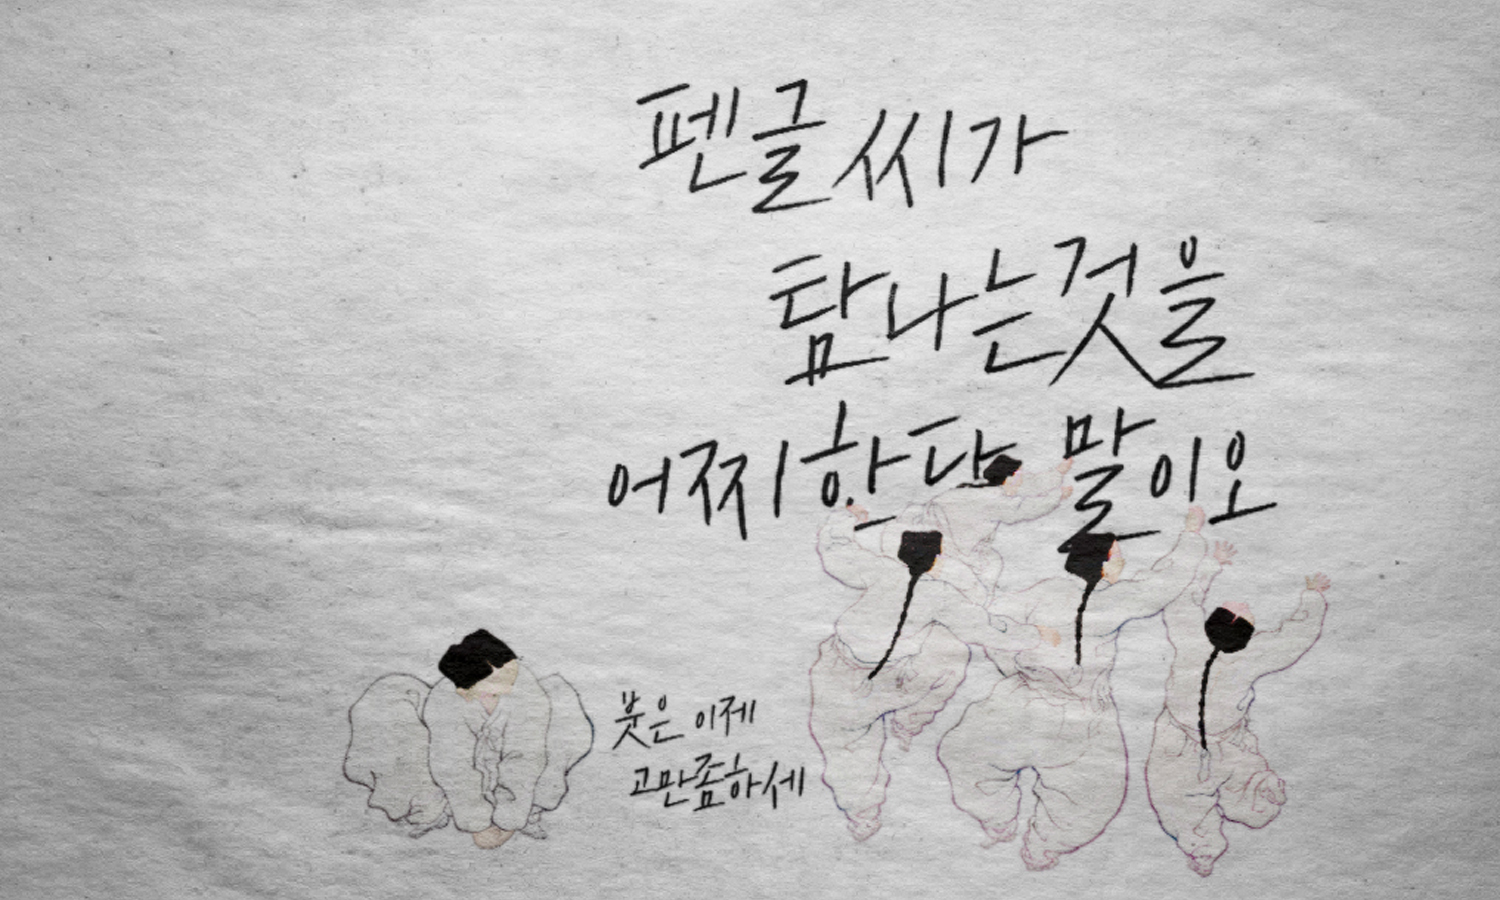 펜글씨가
탐나는것을
어찌한단 말이오
붓은 이제
고만좀하세